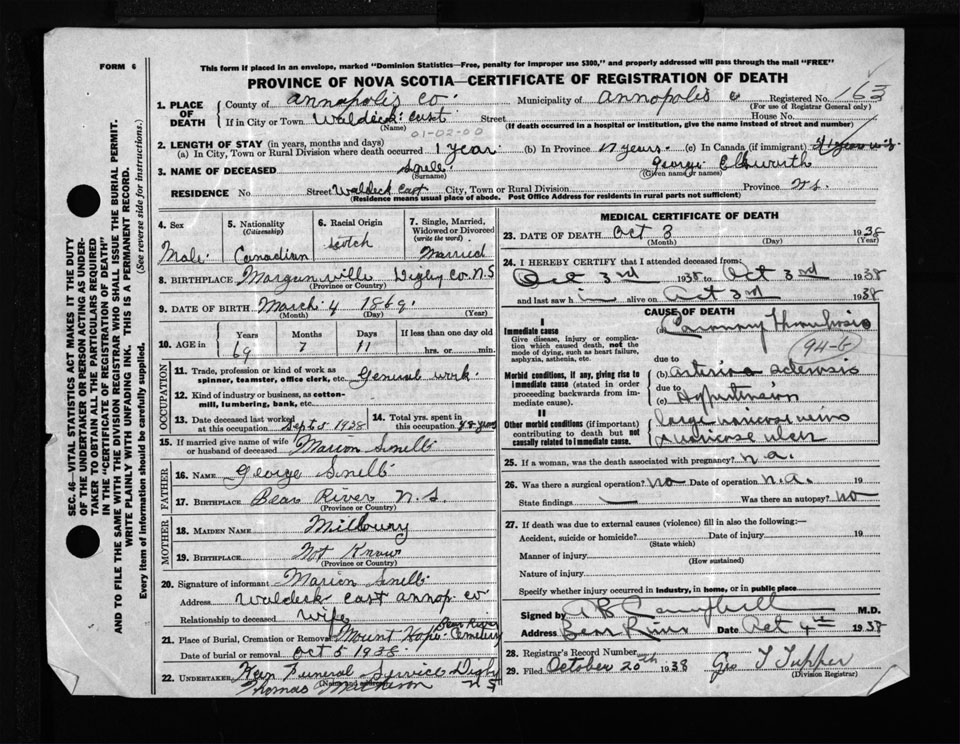 FORM 6
This form if placed in an envelope, marked "Dominion Statistics—Free, penalty for improper use $300," and properly addressed will pass through the mail "FREE"
PROVINCE OF NOVA SCOTIA—CERTIFICATE OF REGISTRATION OF DEATH
1. PLACE OF DEATH
County of Annapolis Co. Municipality of Annapolis Co Registered No. 163
(For use of Registrar General only)
If in City or Town Waldeck East Street House No.
(Name) (If death occurred in a hospital or institution, give the name instead of street and number)
01-02-00
2. LENGTH OF STAY (in years, months and days)
(a) In City, Town or Rural Division where death occurred 1 year (b) In Province years (c) In Canada (if immigrant)
3. NAME OF DECEASED Snell George Ellsworth
(Surname) (Given name or names)
RESIDENCE No. Street Waldeck East City, Town or Rural Division Province N.S.
(Residence means usual place of abode. Post Office Address for residents in rural parts not sufficient)
4. Sex
Male
5. Nationality
(Citizenship)
Canadian
6. Racial Origin
Scotch
7. Single, Married, Widowed or Divorced
(write the word)
Married
8. BIRTHPLACE Morganville Digby Co. N.S
(Province or Country)
9. DATE OF BIRTH March 4 1869
(Month) (Day) (Year)
10. AGE in
Years Months Days If less than one day old
69 7 hrs. or min.
OCCUPATION
11. Trade, profession or kind of work as spinner, teamster, office clerk, etc. General work
12. Kind of industry or business, as cotton-mill, lumbering, bank, etc.
13. Date deceased last worked at this occupation Sept 5 1938
14. Total yrs. spent in this occupation
15. If married give name of wife or husband of deceased Marion Snell
FATHER
16. NAME George Snell
17. BIRTHPLACE Bear River N.S.
(Province or Country)
MOTHER
18. MAIDEN NAME Millbury
19. BIRTHPLACE Not Know
(Province or Country)
20. Signature of informant Marion Snell
Address Waldeck East Annap. Co
Relationship to deceased Wife
21. Place of Burial, Cremation or Removal Mount Hope Cemetery Bear River
Date of burial or removal Oct 5 1938
22. UNDERTAKER Funeral Service Digby
(Name and address)
Thomas N S
MEDICAL CERTIFICATE OF DEATH
23. DATE OF DEATH Oct 3 1938
(Month) (Day) (Year)
24. I HEREBY CERTIFY that I attended deceased from:
Oct 3rd 1938 to Oct 3rd 1938
and last saw him alive on Oct 3rd 1938
CAUSE OF DEATH
I
Immediate cause
Give disease, injury or complication which caused death, not the mode of dying, such as heart failure, asphyxia, asthenia, etc.
(a) Coronary Thrombosis
94-b
due to
Morbid conditions, if any, giving rise to immediate cause (stated in order proceeding backwards from immediate cause).
(b) Arterio sclerosis
due to
(c) Hypertension
II
Other morbid conditions (if important) contributing to death but not causally related to immediate cause.
large varicose veins
varicose ulcer
25. If a woman, was the death associated with pregnancy? n.a.
26. Was there a surgical operation? no Date of operation n.a.
State findings — Was there an autopsy? no
27. If death was due to external causes (violence) fill in also the following:—
Accident, suicide or homicide? Date of injury 19
(State which)
Manner of injury
(How sustained)
Nature of injury
Specify whether injury occurred in industry, in home, or in public place
Signed by Campbell M.D.
Address Bear River Date Oct 4th 1938
28. Registrar's Record Number
29. Filed October 20th 1938 Geo T Tupper
(Division Registrar)
SEC. 46—VITAL STATISTICS ACT MAKES IT THE DUTY
OF THE UNDERTAKER OR PERSON ACTING AS UNDERTAKER TO OBTAIN ALL THE PARTICULARS REQUIRED
IN THE "CERTIFICATE OF REGISTRATION OF DEATH"
AND TO FILE THE SAME WITH THE DIVISION REGISTRAR WHO SHALL ISSUE THE BURIAL PERMIT.
WRITE PLAINLY WITH UNFADING INK. THIS IS A PERMANENT RECORD.
Every item of information should be carefully supplied. (See reverse side for instructions.)